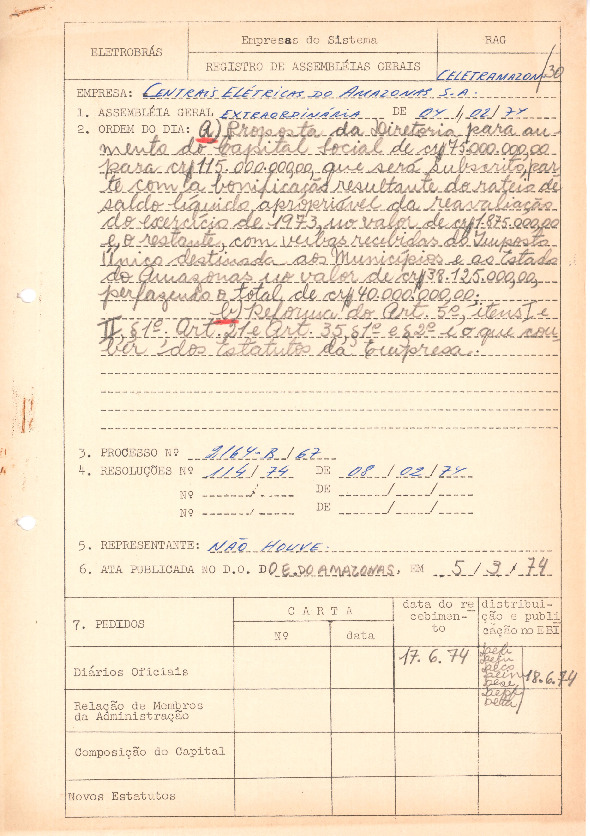 ELETROBRÁS
Empresas do Sistema
RAG
REGISTRO DE ASSEMBLÉIAS GERAIS
CELETRAMAZON/30
EMPRESA: CENTRAIS ELÉTRICAS DO AMAZONAS S.A.
1. ASSEMBLÉIA GERAL EXTRAORDINÁRIA DE 04/02/74
2. ORDEM DO DIA: a) Proposta da Diretoria para au-
mento do Capital Social de cr$ 75.000.000,00
para cr$ 115.000.000,00, que será subscrito, par
te com a bonificação resultante do rateio de
saldo líquido apropriável da reavaliação
do exercício de 1973, no valor de cr$ 1.875.000,00
e o restante, com verbas recebidas do Imposto
Único destinada aos Municípios e ao Estado
do Amazonas no valor de cr$ 38.125.000,00,
perfazendo o total de cr$ 40.000.000,00.
b) Reforma do Art. 5º, itens I e
II, §1º. Art. 21 e Art. 35, §1º e §2º e o que cou-
ber, dos Estatutos da Empresa.
3. PROCESSO Nº 2164-R/67
4. RESOLUÇÕES Nº 114/74 DE 08/02/74
Nº / DE / /
Nº / DE / /
5. REPRESENTANTE: NÃO HOUVE.
6. ATA PUBLICADA NO D.O. DO E. DO AMAZONAS, EM 5/3/74
7. PEDIDOS
CARTA
Nº
data
data do re
cebimen-
to
distribui-
ção e publi
cação no EBI
Diários Oficiais
17.6.74
18.6.74
Relação de Membros
da Administração
Composição do Capital
Novos Estatutos